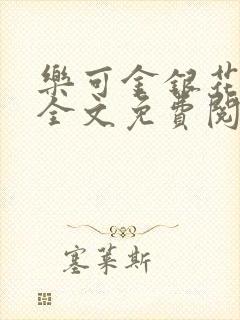 樂可金銀花
全文免費閱
塞萊斯